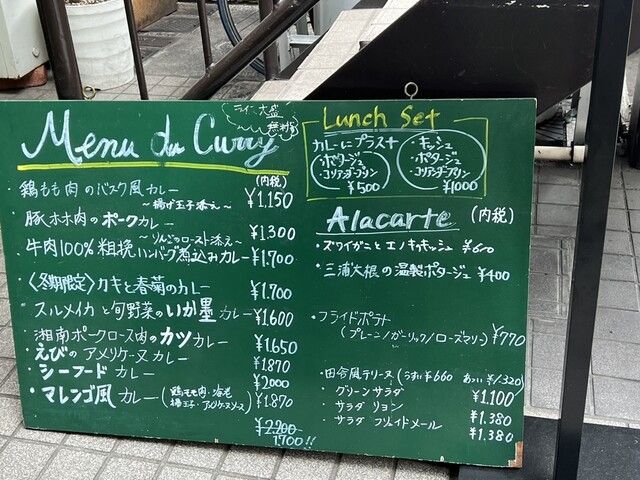 Menu du Curry
ライス大盛
無料
(内税)
・鶏もも肉のバスク風カレー ¥1,150
～揚げ玉子添え～
・豚ホホ肉のポークカレー ¥1,300
～りんごのロースト添え～
・牛肉100%粗挽ハンバーグ煮込みカレー ¥1,700
・〈冬期限定〉カキと春菊のカレー ¥1,700
・スルメイカと旬野菜のいか墨カレー ¥1,600
・湘南ポークロース肉のカツカレー ¥1,650
・えびのアメリケーヌカレー ¥1870
・シーフードカレー ¥2000
・マレンゴ風カレー (鶏もも肉・海老 揚玉子・アメリケソース) ¥1,870
¥2,200
1,700!!
Lunch Set
カレーにプラス+
・ポタージュ
・コリアンダープリン
¥500
・キッシュ
・ポタージュ
・コリアンダープリン
¥1000
Alacarte (内税)
・ズワイガニとエノキのキッシュ ¥600
・三浦大根の温製ポタージュ ¥400
・フライドポテト
(プレーン/ガーリック/ローズマリー) ¥770
・田舎風テリーヌ (うすい¥660 あつい¥1,320)
・グリーンサラダ ¥1,100
・サラダ リヨン ¥1,380
・サラダ フリュイドメール ¥1,380